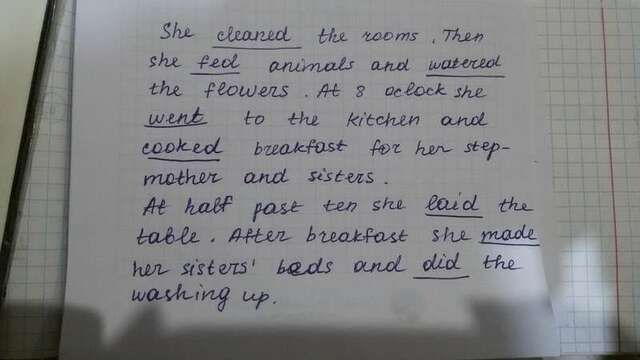 She cleaned the rooms. Then
she fed animals and watered
the flowers. At 8 oclock she
went to the kitchen and
cooked breakfast for her step-
mother and sisters.
At half past ten she laid the
table. After breakfast she made
her sisters' beds and did the
washing up.